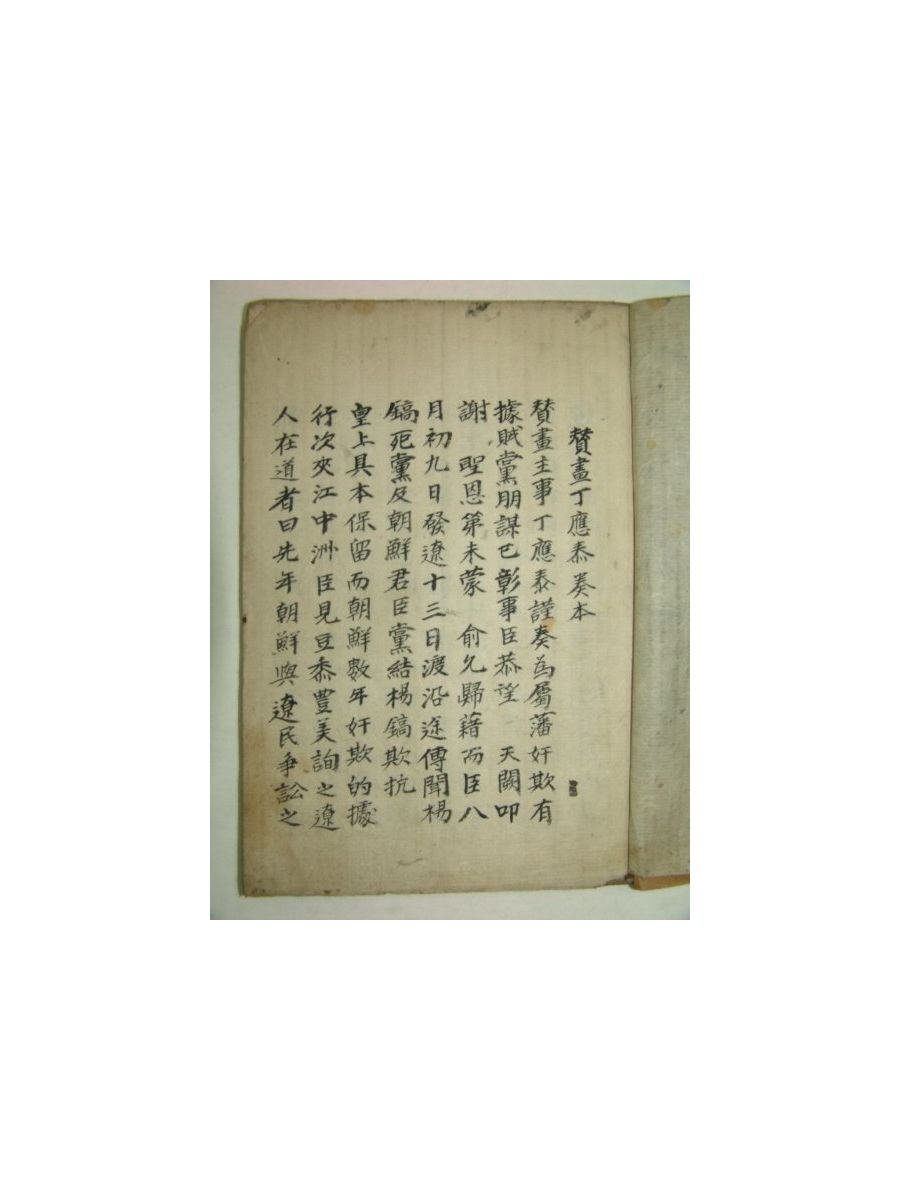 賛畫丁應泰奏本
賛畫主事丁應泰謹奏爲屬藩奸欺有
據賊黨朋謀已彰事臣恭望 天闕叩
謝 聖恩第未蒙 俞允歸藉而臣八
月初九日發遼十三日渡沿途傳聞楊
鎬死黨及朝鮮君臣黨結楊鎬欺抗
皇上具本保留而朝鮮數年奸欺的據
行次夾江中洲臣見豆黍豊美詢之遼
人在道者曰先年朝鮮與遼民爭訟之